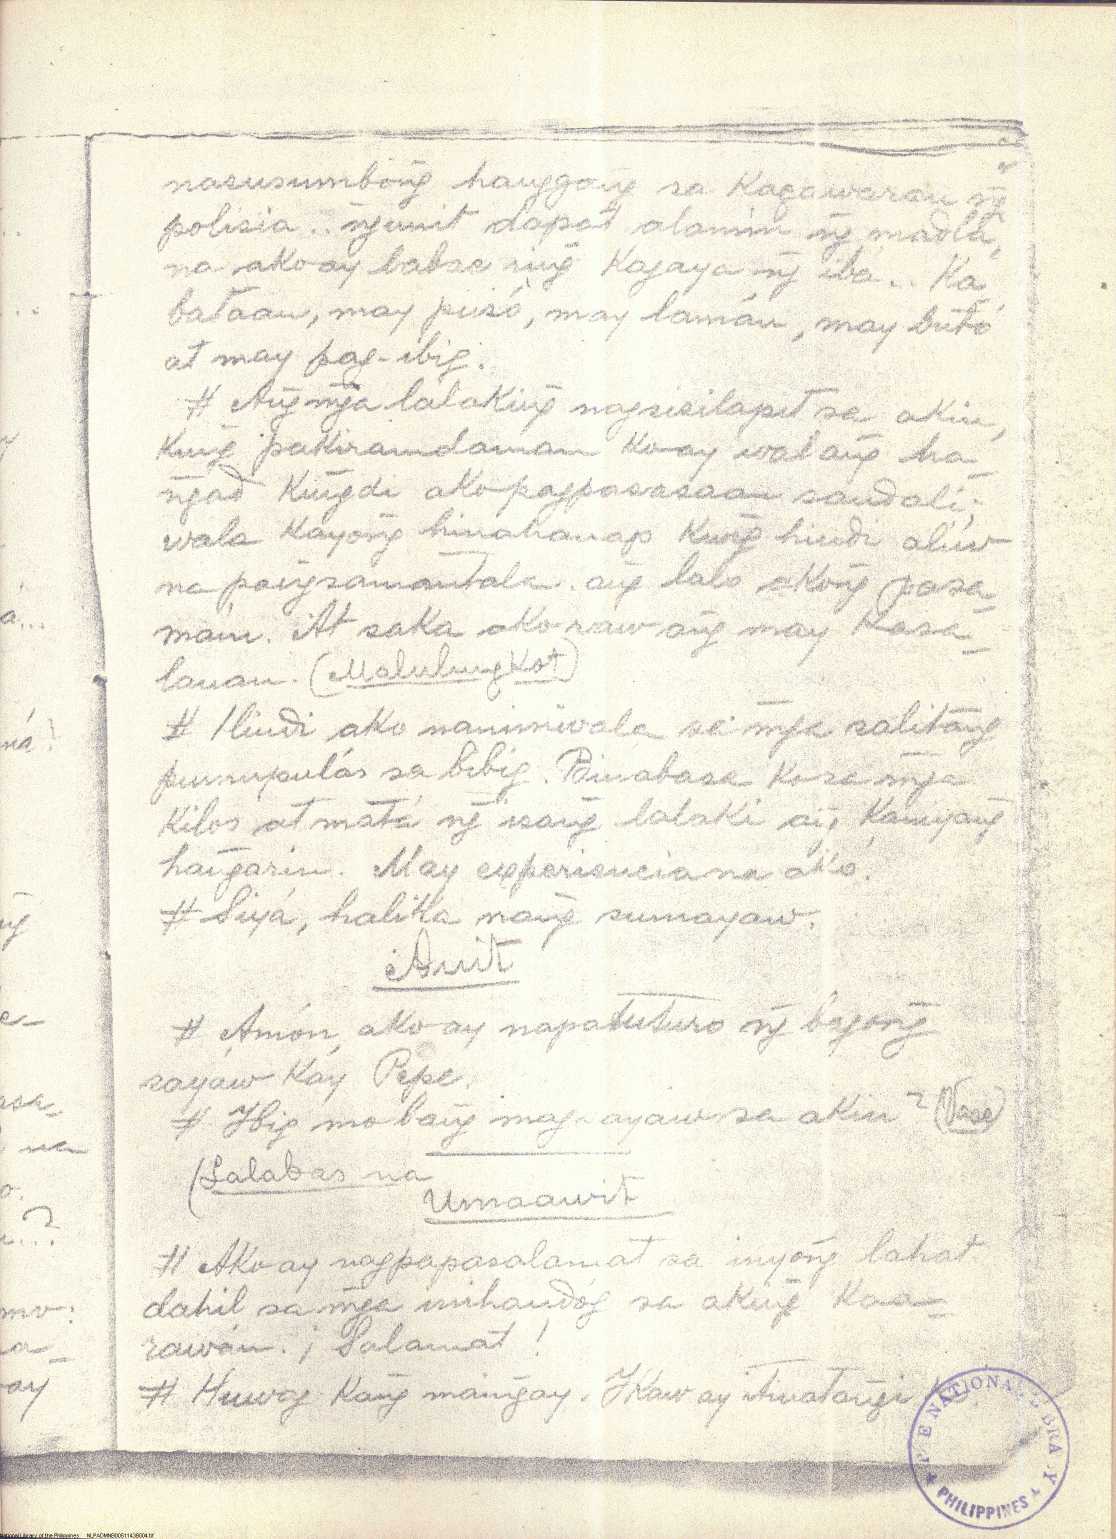 nasusumbong̃ hanggang̃ sa Kagawaran ng̃
polisia.. ng̃unit dapat alamin ng̃ madla,
na ako ay babae ring̃ Kagaya ng̃ iba.. Ka
bataan, may pusó, may lamán, may butó
at may pag-ibig.
# Ang̃ mg̃a lalaking̃ nagsisilapit sa akin,
Kung̃ pakiramdaman ko ay walang̃ ha-
ng̃ad Kung̃di ako pagpasasaan sandali;
wala Kayong̃ hinahanap Kung̃ hindi alíw
na pang̃samantala. ang̃ lalo akong̃ pasa-
maín. At saka ako raw ang̃ may Kasa-
lanan. (Malulungkot)
# Hindi ako naniniwala sa mg̃a salitang̃
pumupulás sa bibig. Binabasa Ko sa mg̃a
Kilos at matá ng̃ isang̃ lalaki ang̃ Kaniyang̃
hang̃arin. May experiencia na akó.
# Siyá, halika nang̃ sumayaw.
Awit
# Amón, ako ay napatuturo ng̃ bagong̃
sayáw Káy Pepe.
# Ibig mo bang̃ mag-ayaw sa akin? (Vase)
(Lalabas na
Umaawit
# Ako ay nagpapasalamat sa inyong̃ lahat
dahil sa mg̃a inihandóg sa aking̃ Kaa-
rawán. ¡ Salamat!
# Huwag Kang̃ maing̃ay. Ikaw ay itinatang̃i
THE NATIONAL LIBRARY
PHILIPPINES
National Library of the Philippines NLPADMNB00611438004.tif